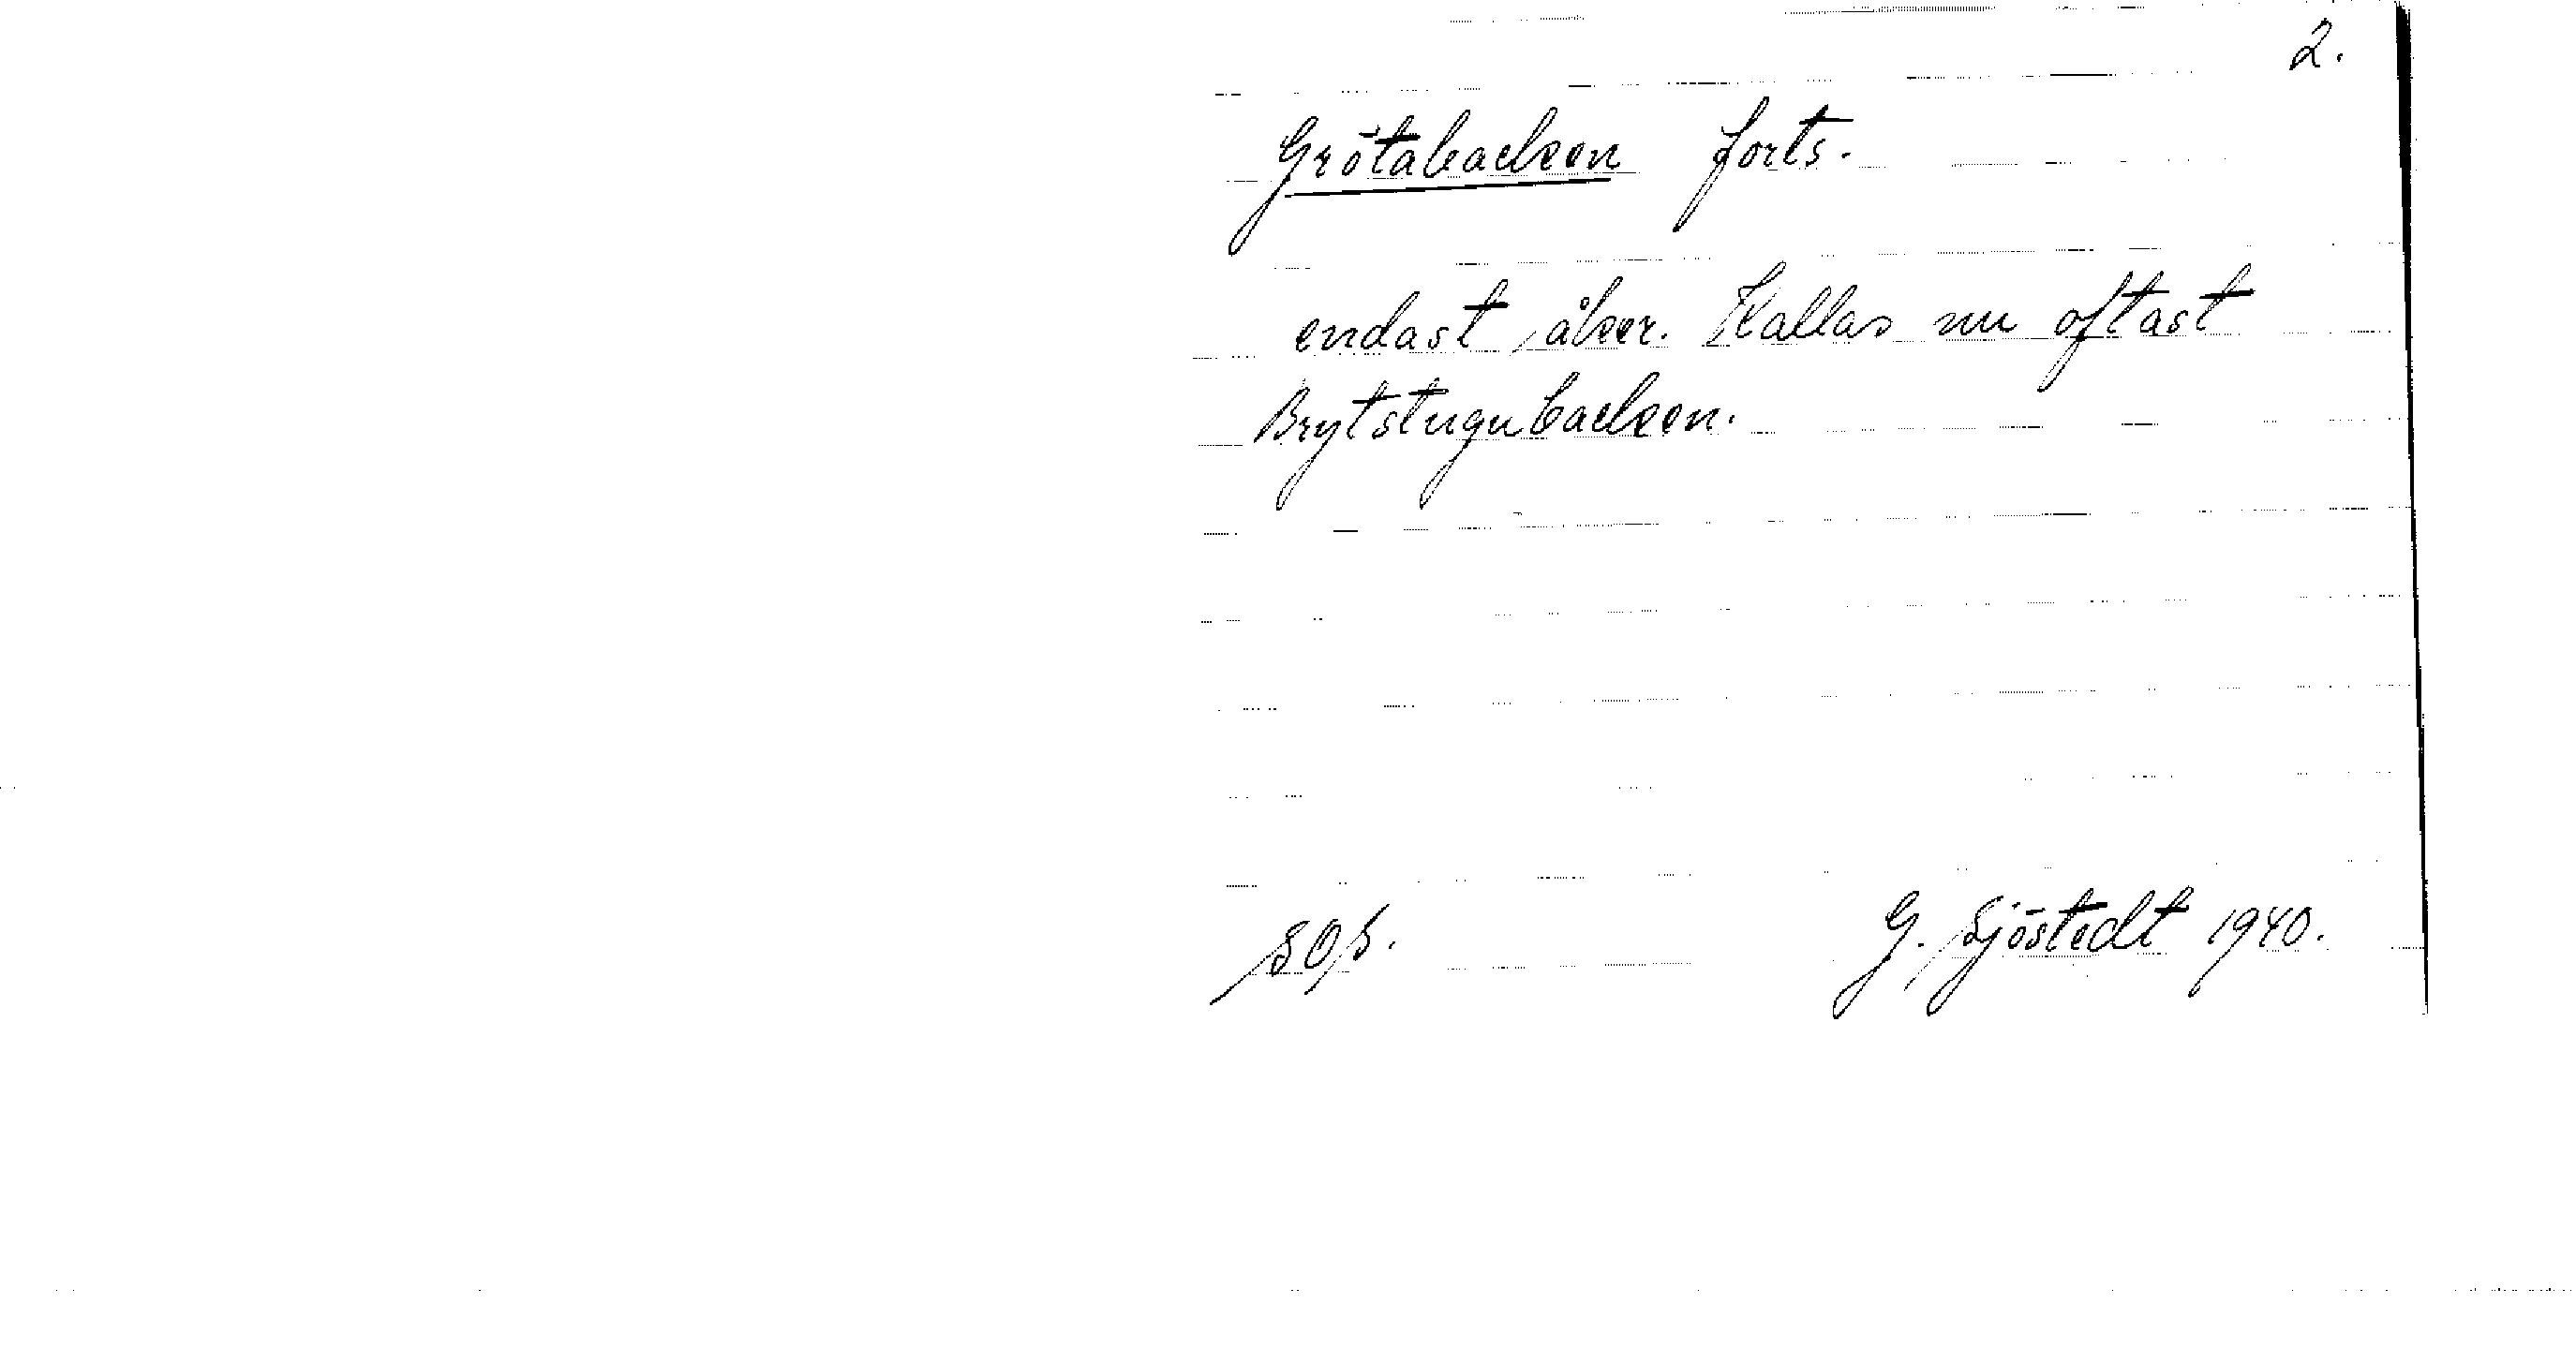 2.
Grötabacken forts.
endast åker. Kallas nu oftast
Brytstugubacken.
G. Sjöstedt 1940.